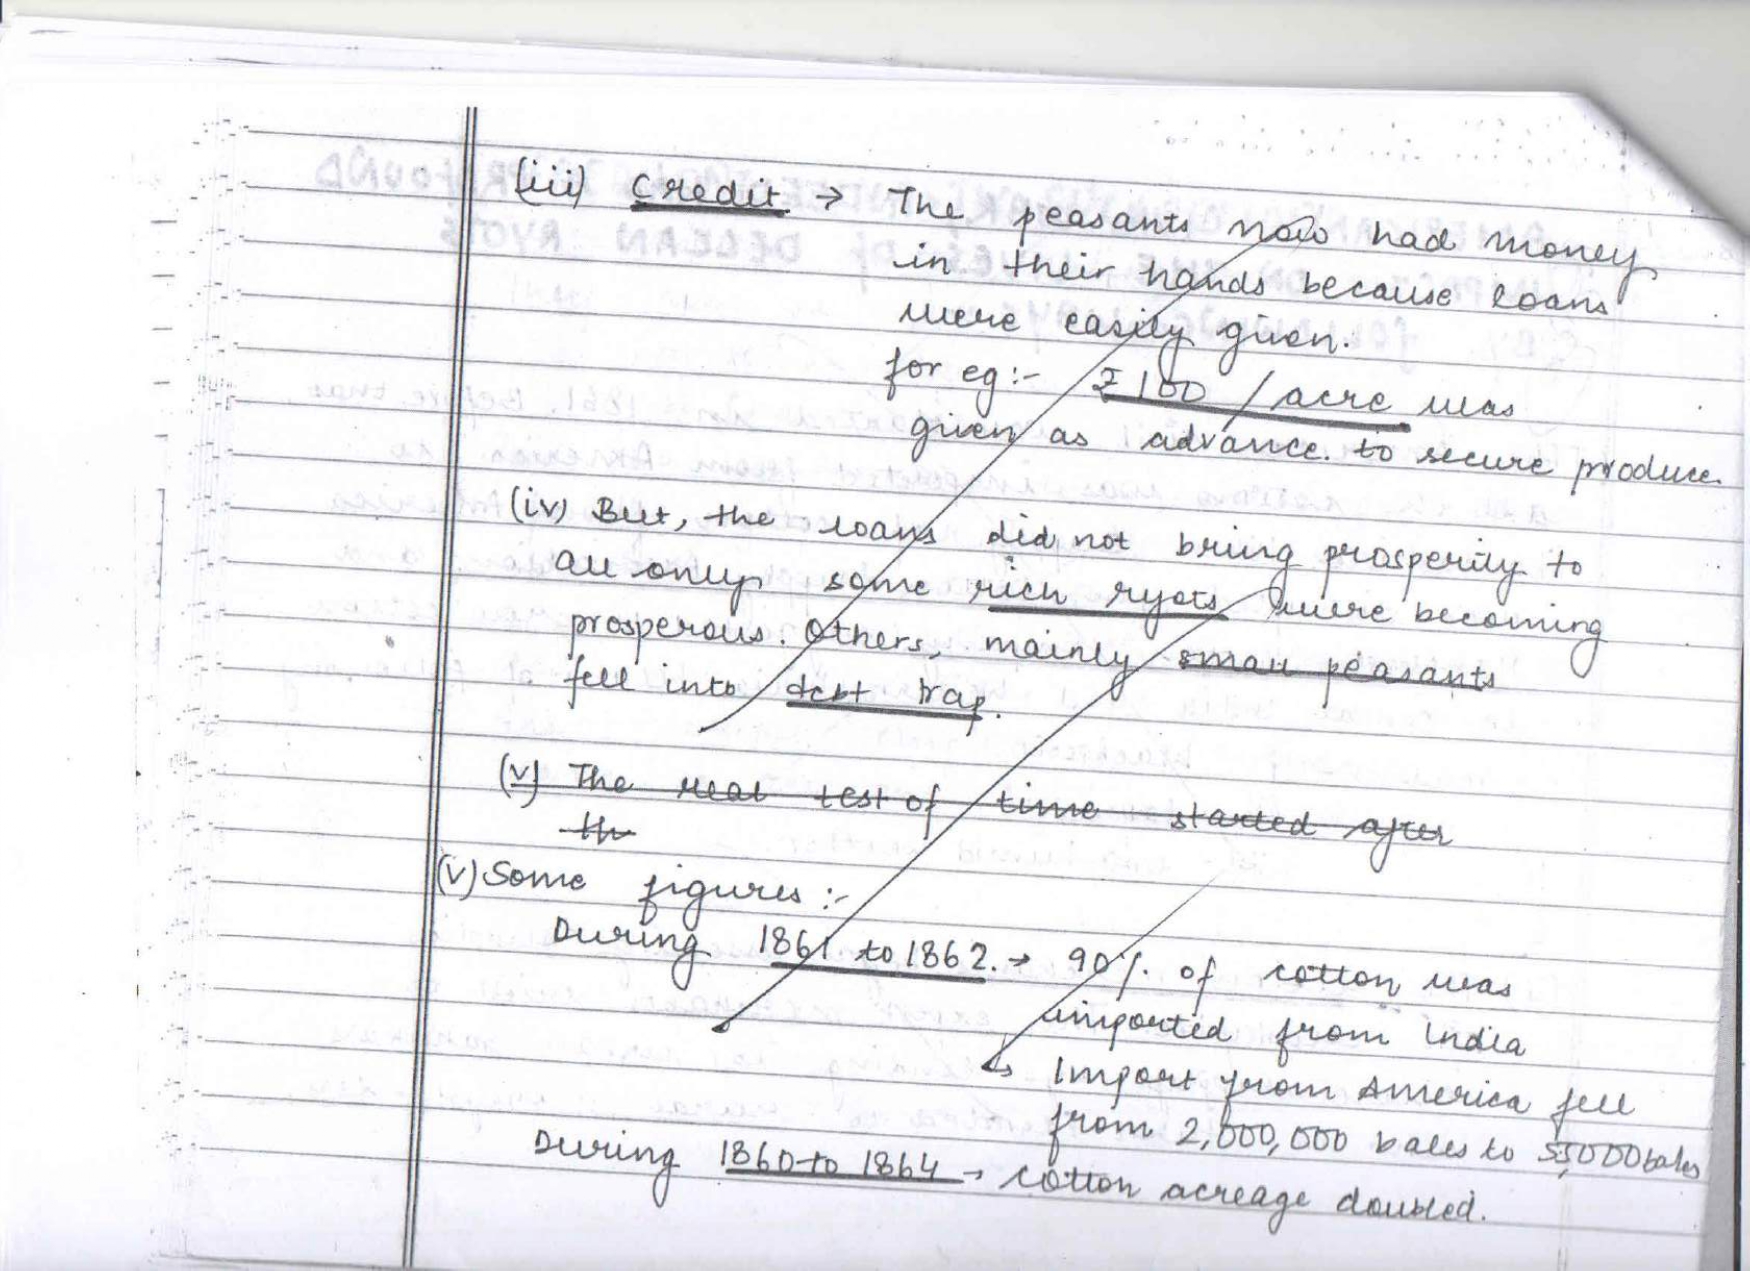 (iii) Credit → The peasants now had money
in their hands because loans
were easily given.
for eg:- ₹100 / acre was
given as advance. to secure produce.
(iv) But, the loans did not bring prosperity to
all only some rich ryots were becoming
prosperous. Others, mainly small peasants
fell into debt trap.
(v) The real test of time started after
th
(v) Some figures :-
During 1861 to 1862. → 90% of cotton was
imported from India
↳ Import from America fell
from 2,000,000 bales to 55,000 bales
During 1860 to 1864 → cotton acreage doubled.